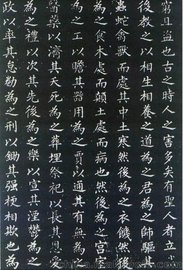 且盜也古之時人之害多矣有聖人者立
後教之以相生養之道為之君為之師驅其
蟲蛇禽獸而處其中土寒然後為之衣飢然後
為之食木處而顛土處而病也然後為之宮室
為之工以贍其器用為之賈以通其有無為之
醫藥以濟其夭死為之葬埋祭祀以長其恩愛
為之禮以次其先後為之樂以宣其湮鬱為之
政以率其怠勌為之刑以鋤其強梗相欺也為